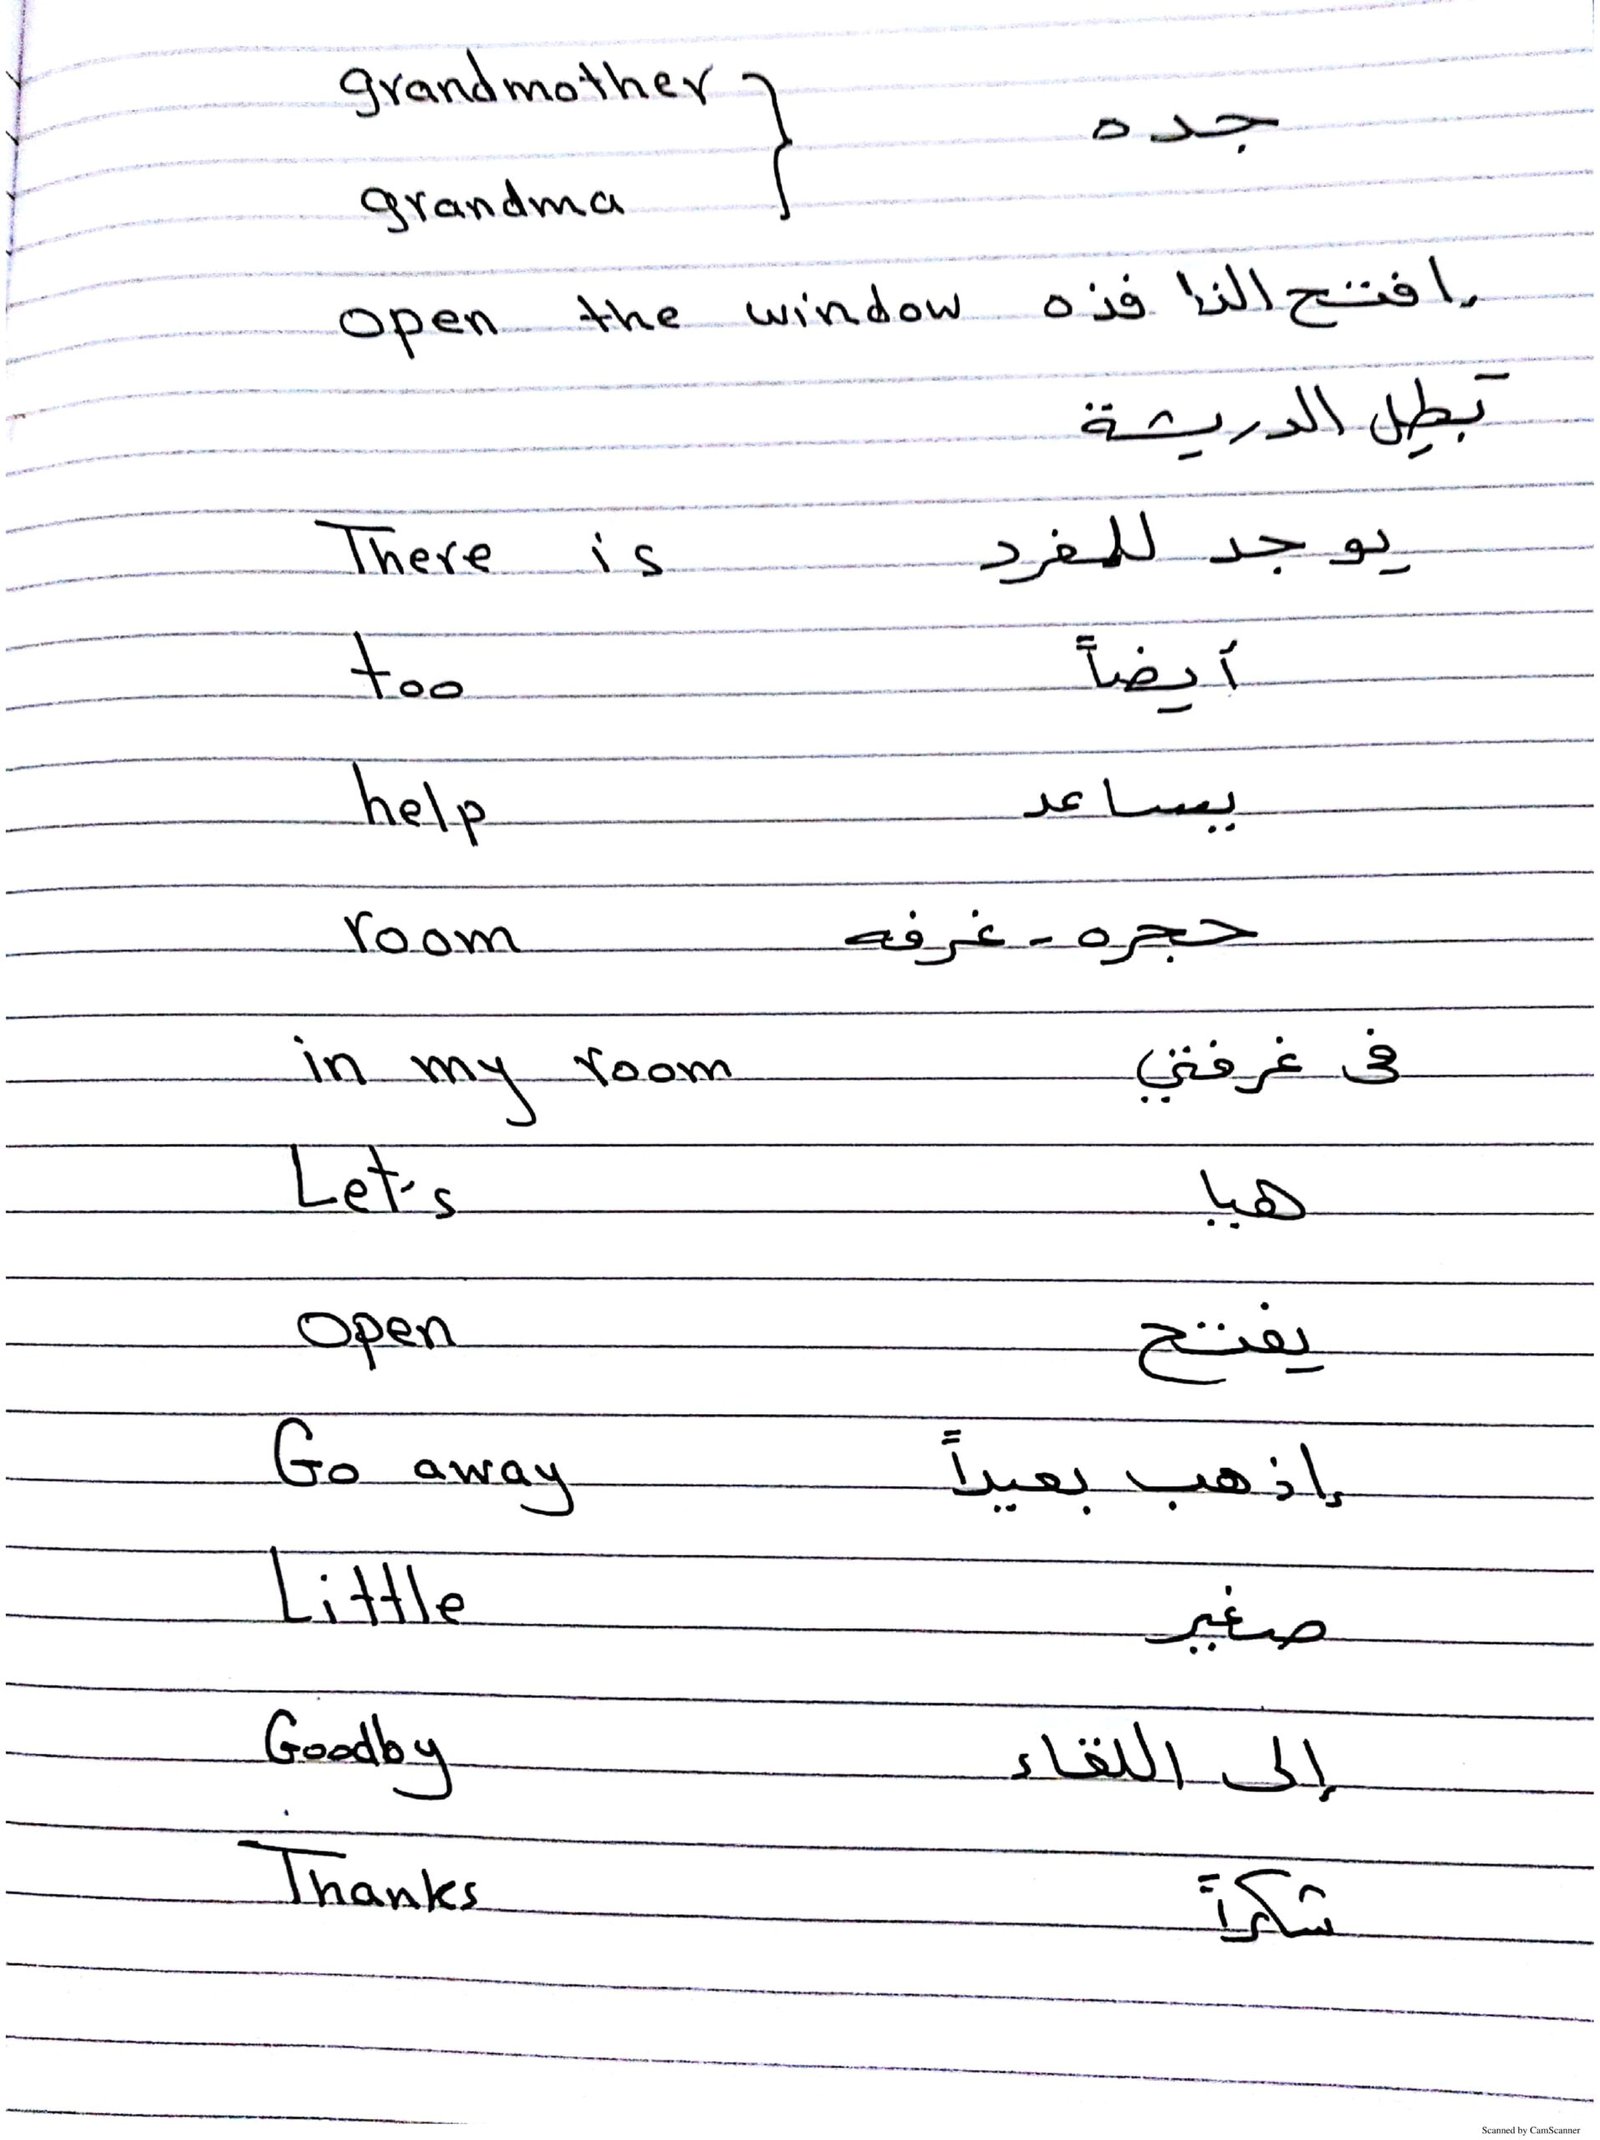 grandmother جده
grandma
open the window إفتح النافذه
تبطل الدريشة
There is يوجد للمفرد
too أيضاً
help يساعد
room حجره - غرفه
in my room فى غرفتي
Let's هيا
open يفتح
Go away إذهب بعيداً
Little صغير
Goodby إلى اللقاء
Thanks شكراً
Scanned by CamScanner